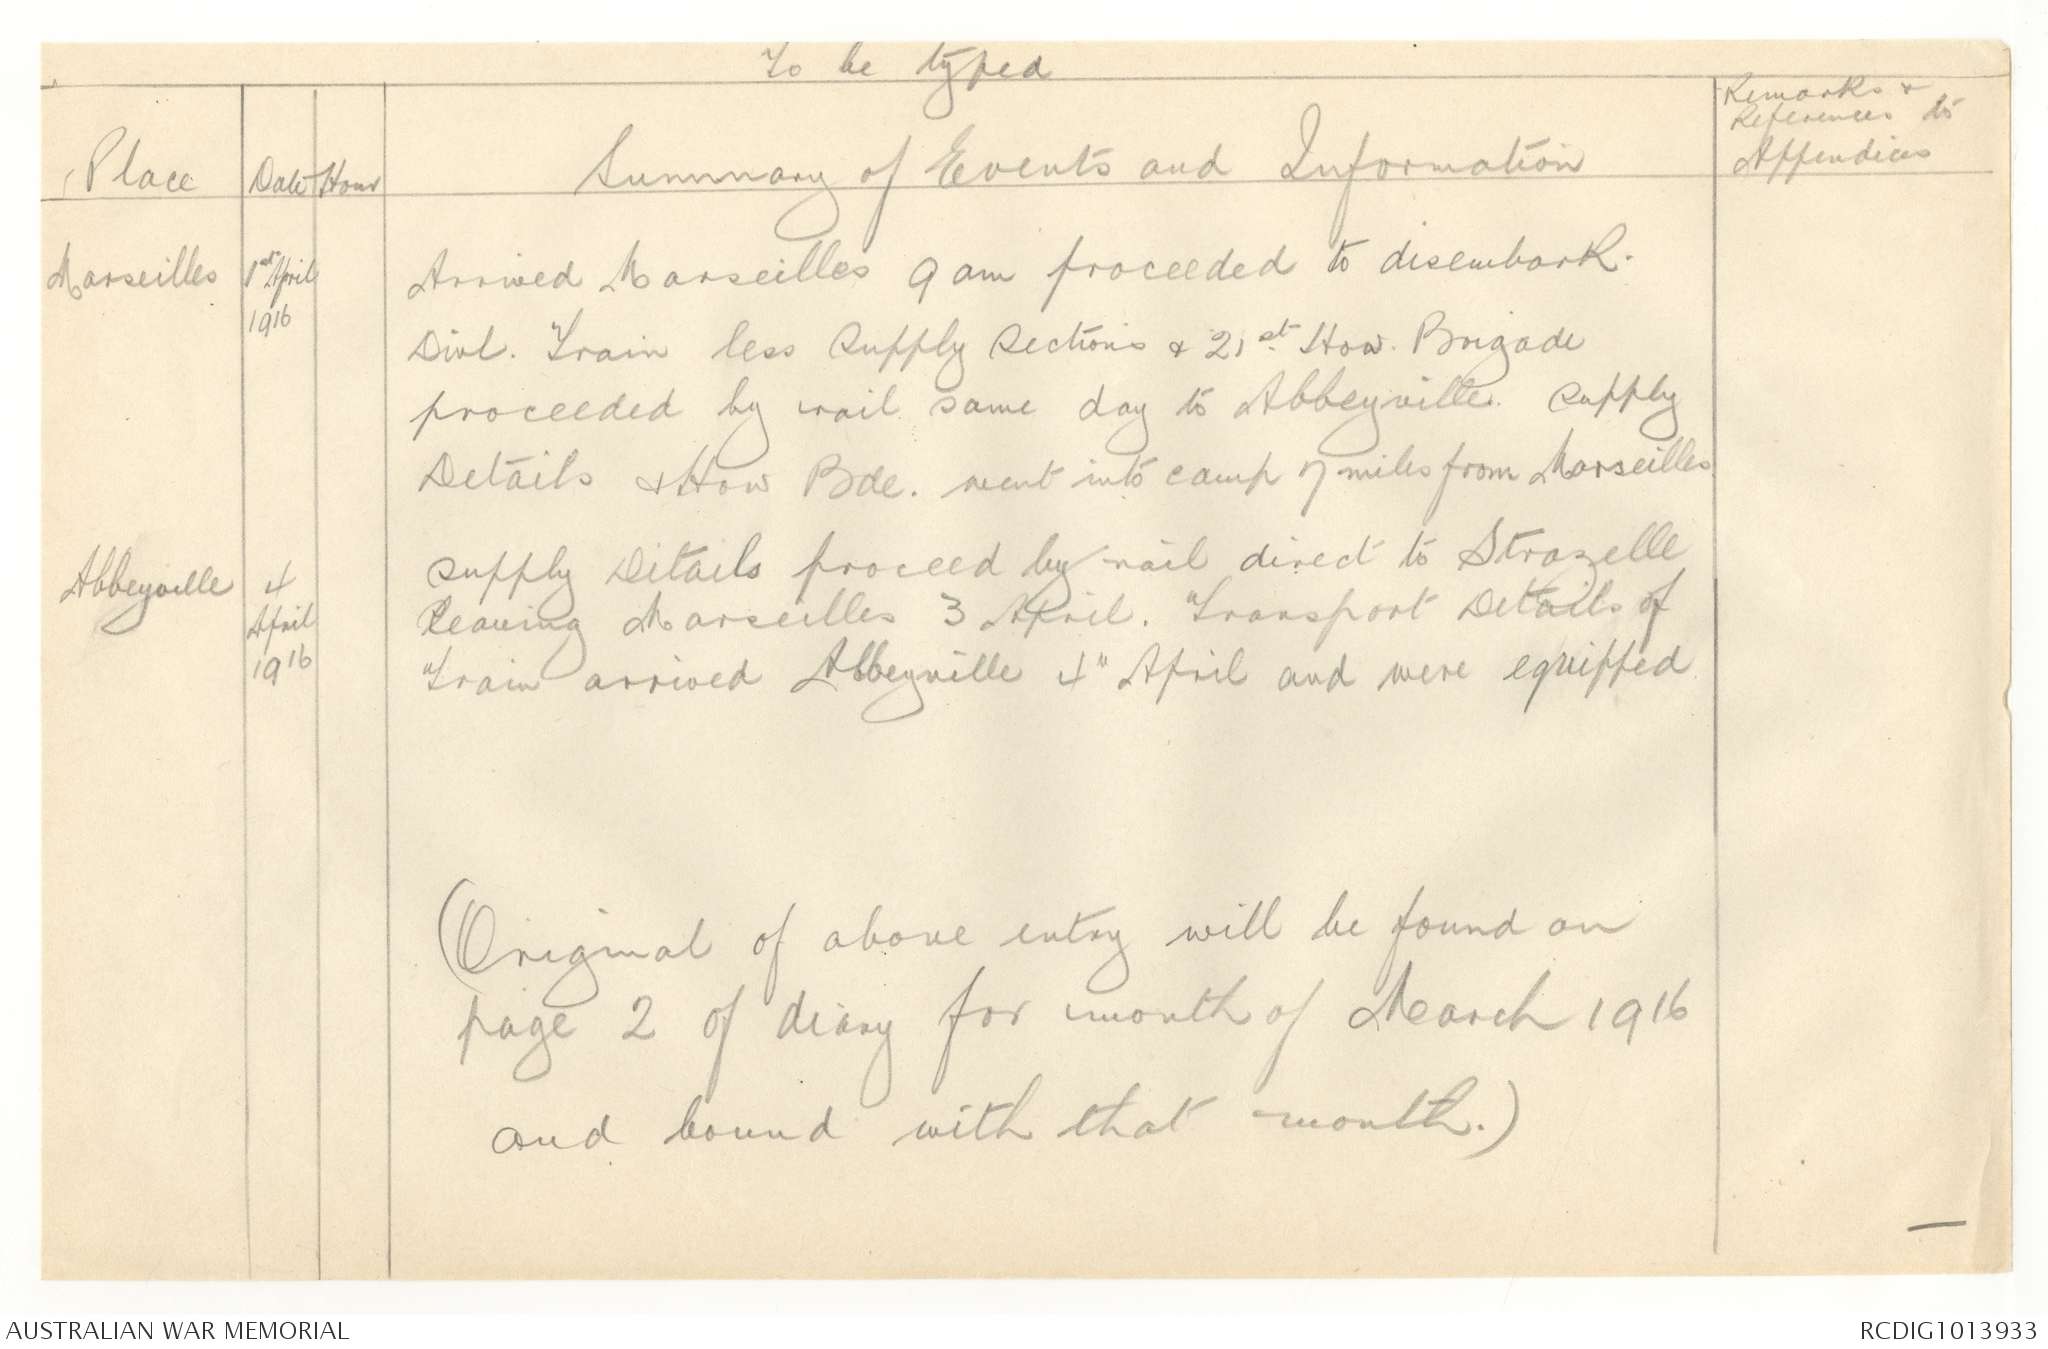 To be typed
Place
Date
Hour
Summary of Events and Information
Remarks &
References to
Appendices
Marseilles
1st April
1916
Arrived Marseilles 9 am proceeded to disembark.
Divl. Train less supply sections & 21st How. Brigade
proceeded by rail same day to Abbeyville. Supply
Details & How Bde. went into camp 7 miles from Marseilles.
Abbeyville
4
April
1916
Supply Details proceed by rail direct to Strazelle
leaving Marseilles 3 April. Transport Details of
Train arrived Abbeyville 4" April and were equipped.
(Original of above entry will be found on
page 2 of diary for month of March 1916
and bound with that month.)
AUSTRALIAN WAR MEMORIAL
RCDIG1013933